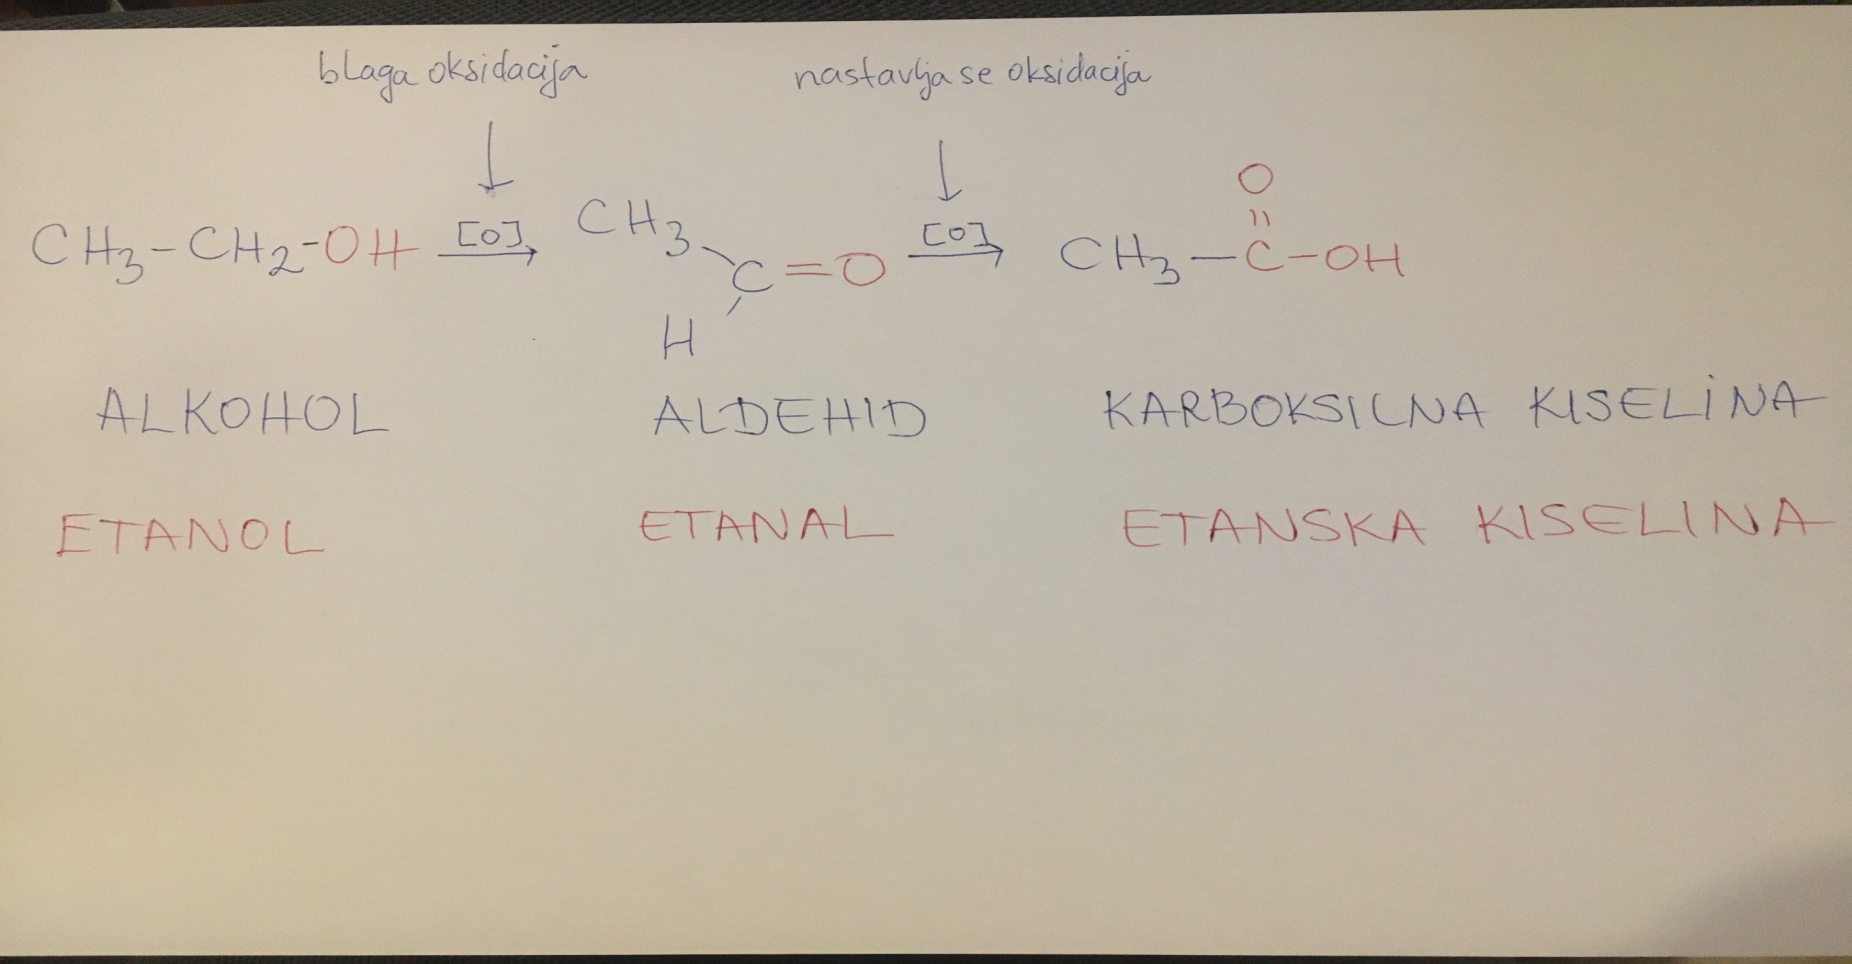 blaga oksidacija nastavlja se oksidacija
CH3-CH2-OH [O] CH3 C=O H [O] CH3-C-OH O
ALKOHOL ALDEHID KARBOKSILNA KISELINA
ETANOL ETANAL ETANSKA KISELINA